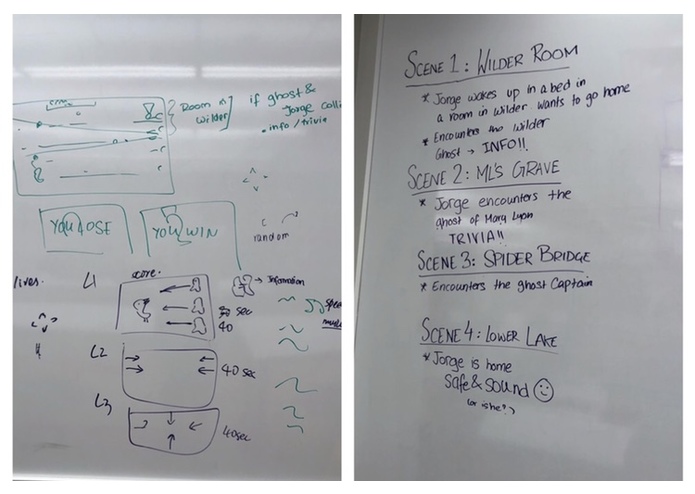 Room in
wilder
if ghost &
Jorge colli
info/trivia
YOU LOSE
YOU WIN
random
lives.
score.
L1
Information
40
L2
40 sec
L3
40sec
SCENE 1: WILDER ROOM
* Jorge wakes up in a bed in
a room in wilder wants to go home
* Encounters the wilder
Ghost → INFO!!
SCENE 2: ML'S GRAVE
* Jorge encounters the
ghost of Mary Lyon
TRIVIA!!
SCENE 3: SPIDER BRIDGE
* Encounters the ghost Captain
SCENE 4: LOWER LAKE
* Jorge is home
safe & sound
(or is he?)